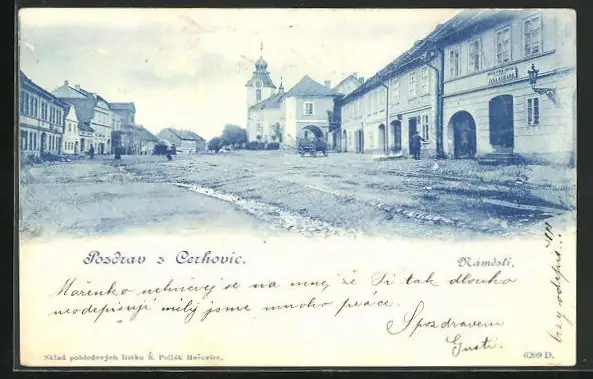 Pozdrav z Cerhovic.
Náměstí.
Mařenko nehněvej se na mnej že Ti tak dlouho
neodepisuji milý jsme mnoho práce.
Spozdravem
Gusti.
brzy odepiš
Sklad pohledových lístku Š. Pollák Hořovice.
6209 D.